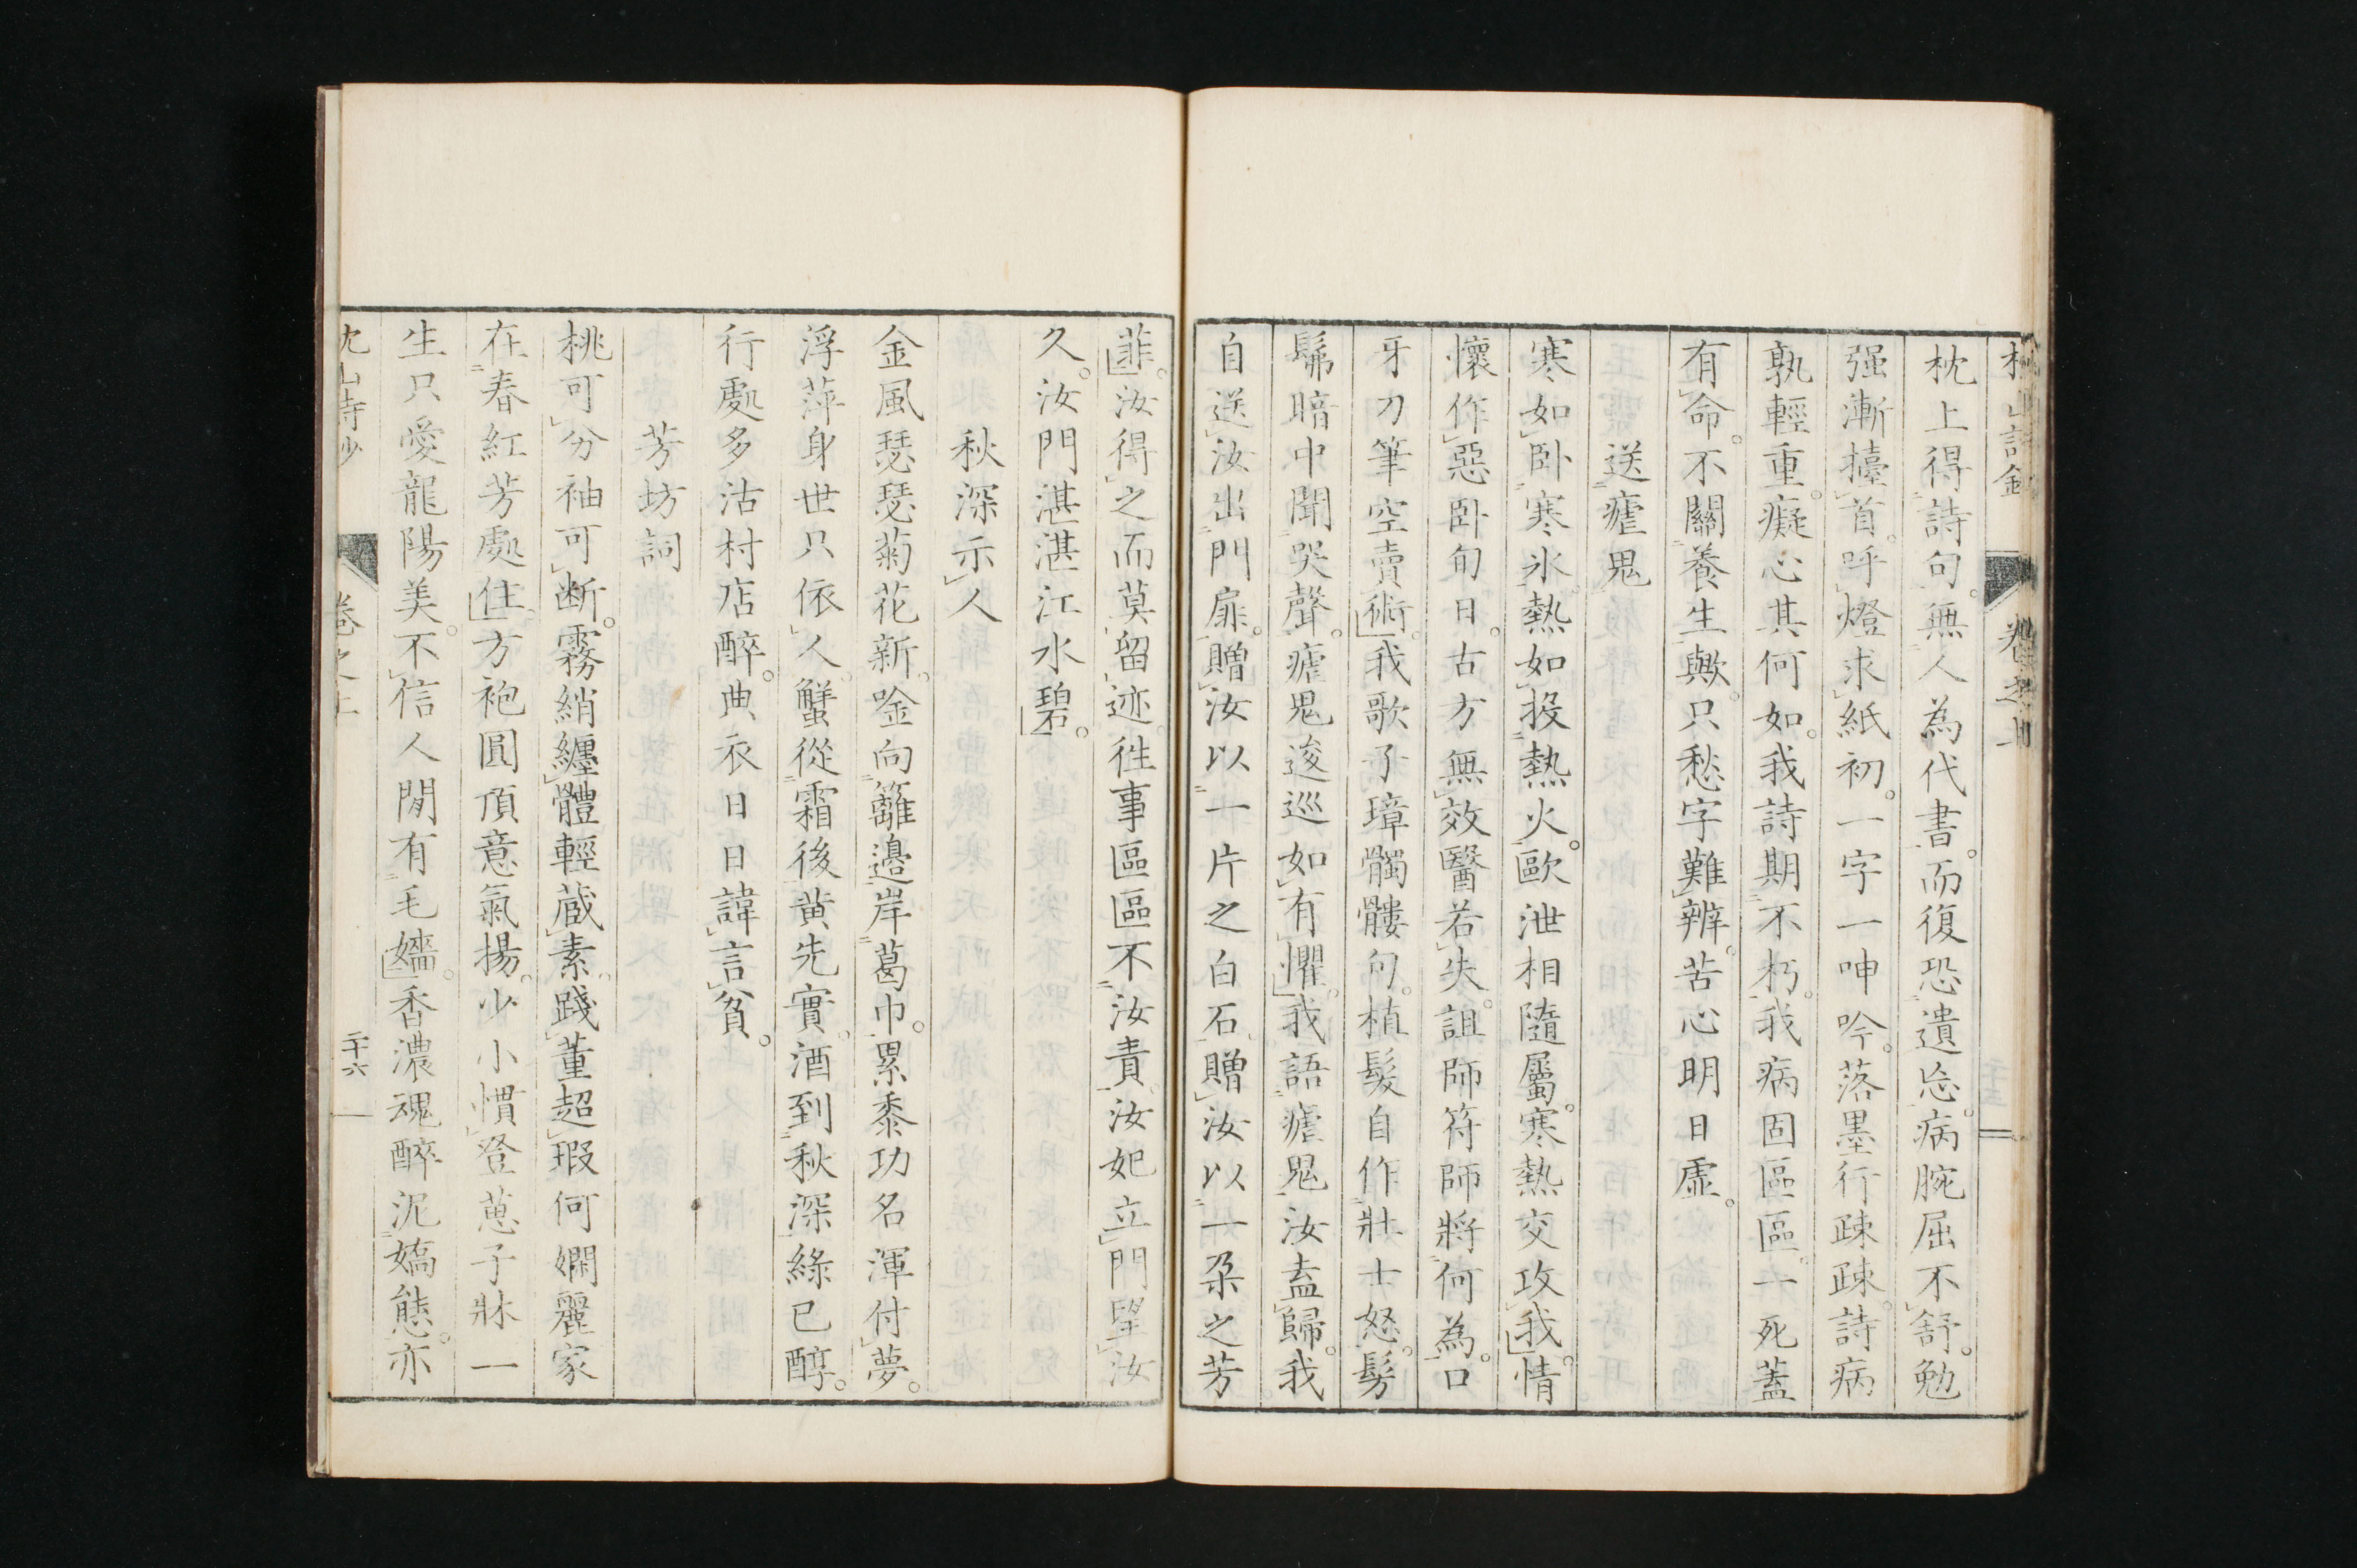 枕上得詩句。無人為代書。而復恐遺忘。病腕屈不舒。勉
强漸擡首。呼燈求紙初。一字一呻吟。落墨行疎疎。詩病
孰輕重。癡心其何如。我詩期不朽。我病固區區。一死蓋
有命。不關養生歟。只愁字難辨。苦心明日虛。
送瘧鬼
寒如臥寒氷。熱如投熱火。歐泄相隨屬。寒熱交攻我。情
懷作惡臥旬日。古方無效醫若失。詛師符師將何為。口
牙刀筆空賣術。我歌子璋髑髏句。植髮自作壯士怒。髣
髴暗中聞哭聲。瘧鬼逡巡如有懼。我語瘧鬼汝盍歸。我
自送汝出門扉。贈汝以一片之白石。贈汝以一朶之芳
菲。汝得之而莫留迹。徃事區區不汝責。汝妃立門望汝
久。汝門湛湛江水碧。
秋深示人
金風瑟瑟菊花新。唫向籬邊岸葛巾。累黍功名渾付夢。
浮萍身世只依人。蟹從霜後黄先實。酒到秋深綠已醇。
行處多沽村店醉。典衣日日諱言貧。
芳坊詞
桃可分袖可断。霧綃纏體輕蔵素。踐董超瑕何嫻麗家
在春紅芳處住。方袍圓頂意氣揚。少小慣登蒽子牀一
生只愛龍陽美。不信人間有毛嬙。香濃魂醉泥嬌態。亦
卷之上
二十六